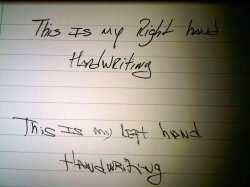 This Is my Right hand
Handwriting
This Is my Left hand
Handwriting